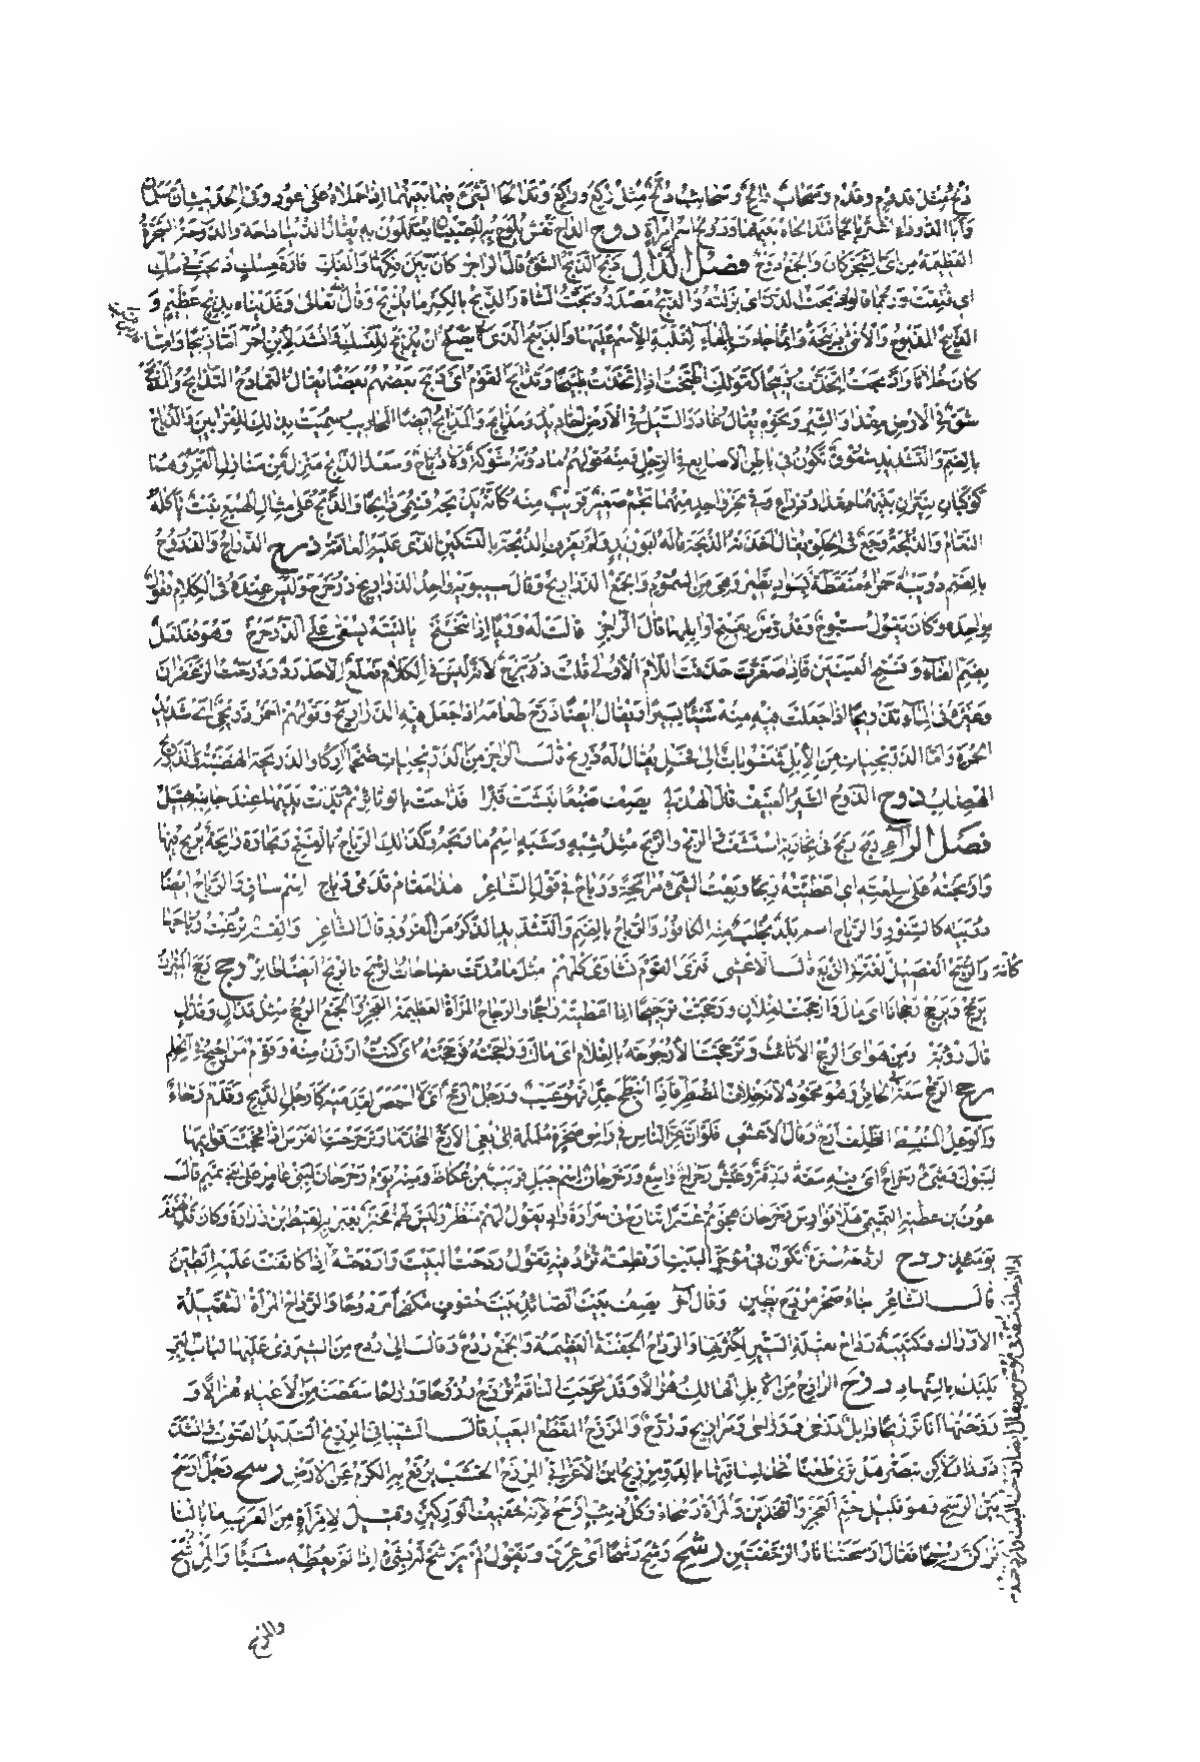 دلح مثل قادم وقدم وسحاب دالح وسحائب دلح مثل راكع وركع وتدالحا الشيء فيما بينهما اذا حملاه على عود وفي الحديث ان سلمان
وابا الدرداء اشتريا لحما فتدالحاه بينهما ودوح اسم امراة دوح الداح نقش يلوح به للصبيان يعللون به يقال الدنيا داحة والدوحة الشجرة
العظيمة من اي الشجر كان والجمع دوح فصل الذال ذبح الذبح الشق قال الراجز كان بين فكها والفك فارة مسك ذبحت في سك
اي فتقت وربما قالوا ذبحت الدن اي بزلته والذبح مصدر ذبحت الشاة والذبح بالكسر ما يذبح وقال تعالى وفديناه بذبح عظيم و
الذبيح المذبوح والانثى ذبيحة وانما جاءت بالهاء لغلبة الاسم عليها والذبيح الذي يصلح ان يذبح للنسك قال ابن احمر اما ذبيحا واما
كان حلانا واذبحت اتخذت ذبيحا كقولك اطبخت اذا اتخذت طبيخا وتذابح القوم اي ذبح بعضهم بعضا يقال التمادح التذابح والمذبح
شق في الارض مقدار الشبر ونحوه يقال غادر السيل في الارض اخاديد ومذابح والمذابح ايضا المحاريب سميت بذلك للقرابين والذباح
بالضم والتشديد شقوق تكون في باطن الاصابع في الرجل ومنه قولهم ما دونه شوكة ولا ذباح وسعد الذابح منزل من منازل القمر وهما
كوكبان نيران بينهما مقدار ذراع وفي نحر واحد منهما نجم صغير قريب منه كانه يذبحه فسمي ذابحا والذبح على مثال الهبع نبت ياكله
النعام والذبحة وجع في الحلق يقال اخذته الذبحة قاله ابو زيد ولم يعرف الذبحة بالتسكين الذي عليه العامة ذرح الذراح والذروح
بالضم دويبة حمراء منقطة بسواد تطير وهي من السموم والجمع الذراريح وقال سيبويه واحد الذراريح ذرحرح وليس عنده في الكلام فعول
بواحدة وكان يقول سبوح وقدوس بفتح اوايلها قال الراجز قالت له وريا اذا تنحنح يا ليته يسقى على الذرحرح وهو فعلعل
بضم الفاء وفتح العينين فاذا صغرت حذفت اللام الاولى قلت ذريرح لانه ليس في الكلام فعلع الا حدرد وذرحت الزعفران
وغيره في الماء تذريحا اذا جعلت فيه منه شيئا يسيرا ويقال ايضا ذرح طعامه اذا جعل فيه الذراريح وقولهم احمر ذريحي اي شديد
الحمرة واما الذريحيات من الابل فمنسوبات الى فحل يقال له ذريح قال الراجز من الذريحيات ضخما اركا والذريحة الهضبة والذريح
الهضاب ذوح الذوح السير العنيف قال الهذلي يصف ضبعا نبشت قبرا فذاحت بالوتائر ثم بدت يديها عند جانبه تهيل
فصل الراء ربح ربح في تجارته استشف والربح والربح مثل شبه وشبه اسم ما ربحه وكذلك الرباح بالفتح وتجارة رابحة يربح فيها
واربحته على سلعته اي اعطيته ربحا وبعت الشيء مرابحة ورباح في قول الشاعر هذا مقام قدمي رباح اسم ساق والرباح ايضا
دويبة كالسنور والرباح اسم بلد يجلب منه الكافور والرباح بالضم والتشديد الذكر من القرود قال الشاعر والقة ترغث رباحها
كانه والربح الفصيل لغة في الربع قال الاعشى فترى القوم نشاوى كلهم مثل ما مدت نصاحات الربح والربح ايضا طاير رجح رجح الميزان
يرجح ويرجح رجحانا اي مال وارجحت لفلان ورجحت ترجيحا اذا اعطيته راجحا والرجاح المراة العظيمة العجز والجمع الرجح مثل قذال وقذل
قال رؤبة ومن هواي الرجح الاثائث وترجحت الارجوحة بالغلام اي مالت وراجحته فرجحته اي كنت ارزن منه وقوم مراجيح في الحلم
رحح الرحح سعة الحافر وهو محمود لانه خلاف المضطر فاذا انبطح جدا فهو عيب ورجل ارح اي لا اخمص لقدميه كارجل الزنج وقدم رحاء
والوعل المنبسط الظلف ارح وقال الاعشى فلو ان عز الناس في راس صخرة ململمة تعيي الارح المخدما وترحرحت الفرس اذا فحجت قوايمها
لتبول وشيء رحراح اي فيه سعة ورقة وعيش رحراح واسع ورحرحان اسم جبل قريب من عكاظ ومنه يوم رحرحان لبني عامر على بني تميم قال
عوف بن عطية التميمي هلا فوارس رحرحان هجوتم عشرا تناوح في سرارة واد يقول لهم منظر وليس لهم مخبر يعير به لقيط بن زرارة وكان قد انهزم
يومئذ ردح الردحة سترة تكون في مؤخر البيت او قطعة تزاد فيه تقول ردحت البيت واردحته اذا كاثفت عليه الطين
قال الشاعر بناء صخر مردح بطين وقال آخر يصف بيت الصائد بيت حتوف مكفاء مردوحا والرداح المراة الثقيلة
الاوراك وكتيبة رداح ثقيلة السير لكثرتها والرداح الجفنة العظيمة والجمع ردح وقال الى ردح من الشيزى عليها لباب البر
يلبك بالشهاد رزح الرازح من الابل الهالك هزالا وقد رزحت الناقة ترزح رزوحا ورزاحا سقطت من الاعياء هزالا و
رزحتها انا ترزيحا وابل رزحى ورزاحى ومرازيح ورزح والمرزح المقطع البعيد قال الشيباني المرزيح الشديد الصوت وانشد
ذر ذا ولكن تبصر هل ترى ظعنا تحدى لساقتها بالدو مرزيح ابن الاعرابي المرزح الخشب يرفع به الكرم عن الارض رسح رجل ارسح
بين الرسح وهو قليل لحم العجز والفخذين وامراة رسحاء وكل ذئب ارسح لانه خفيف الوركين وقيل لامراة من العرب ما بالنا
نراكن رسحا فقالت ارسحتنا نار الزحفتين رشح رشح رشحا اي عرق وتقول لم يرشح له بشيء اذا لم يعطه شيئا والمرشح
والمرشح